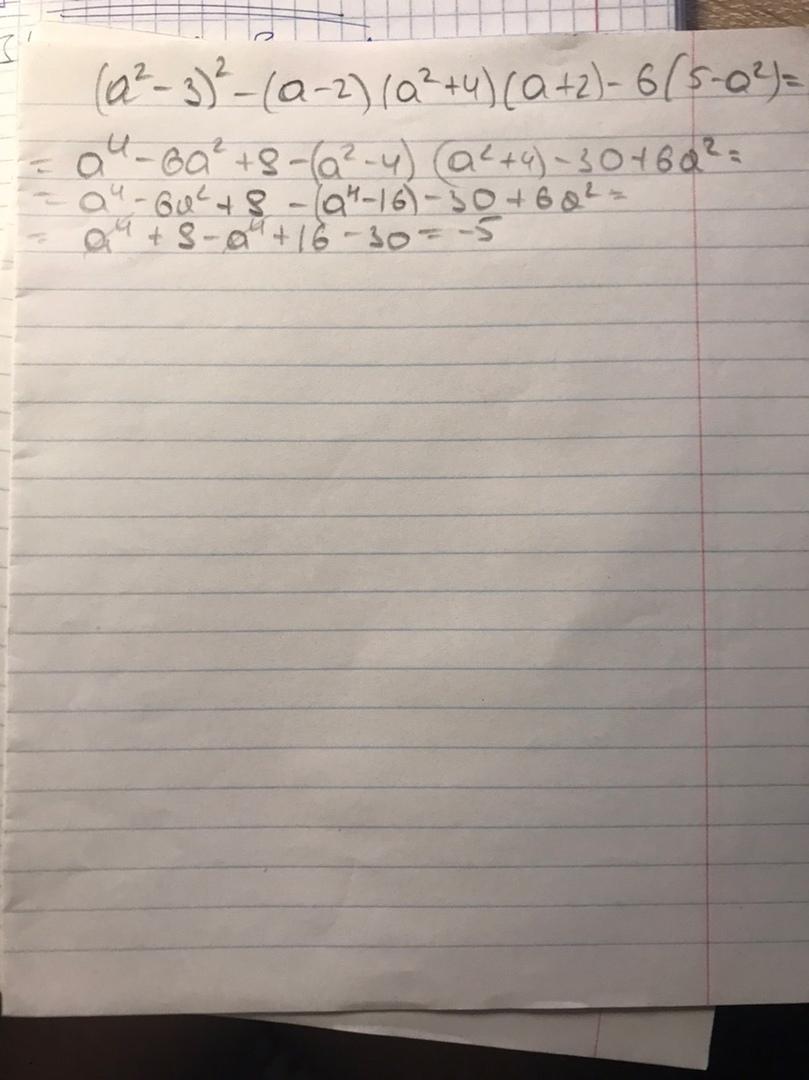 (a² - 3)² - (a - 2)(a² + 4)(a + 2) - 6(5 - a²) =
= a⁴ - 6a² + 9 - (a² - 4)(a² + 4) - 30 + 6a² =
= a⁴ - 6a² + 9 - (a⁴ - 16) - 30 + 6a² =
= a⁴ + 9 - a⁴ + 16 - 30 = -5